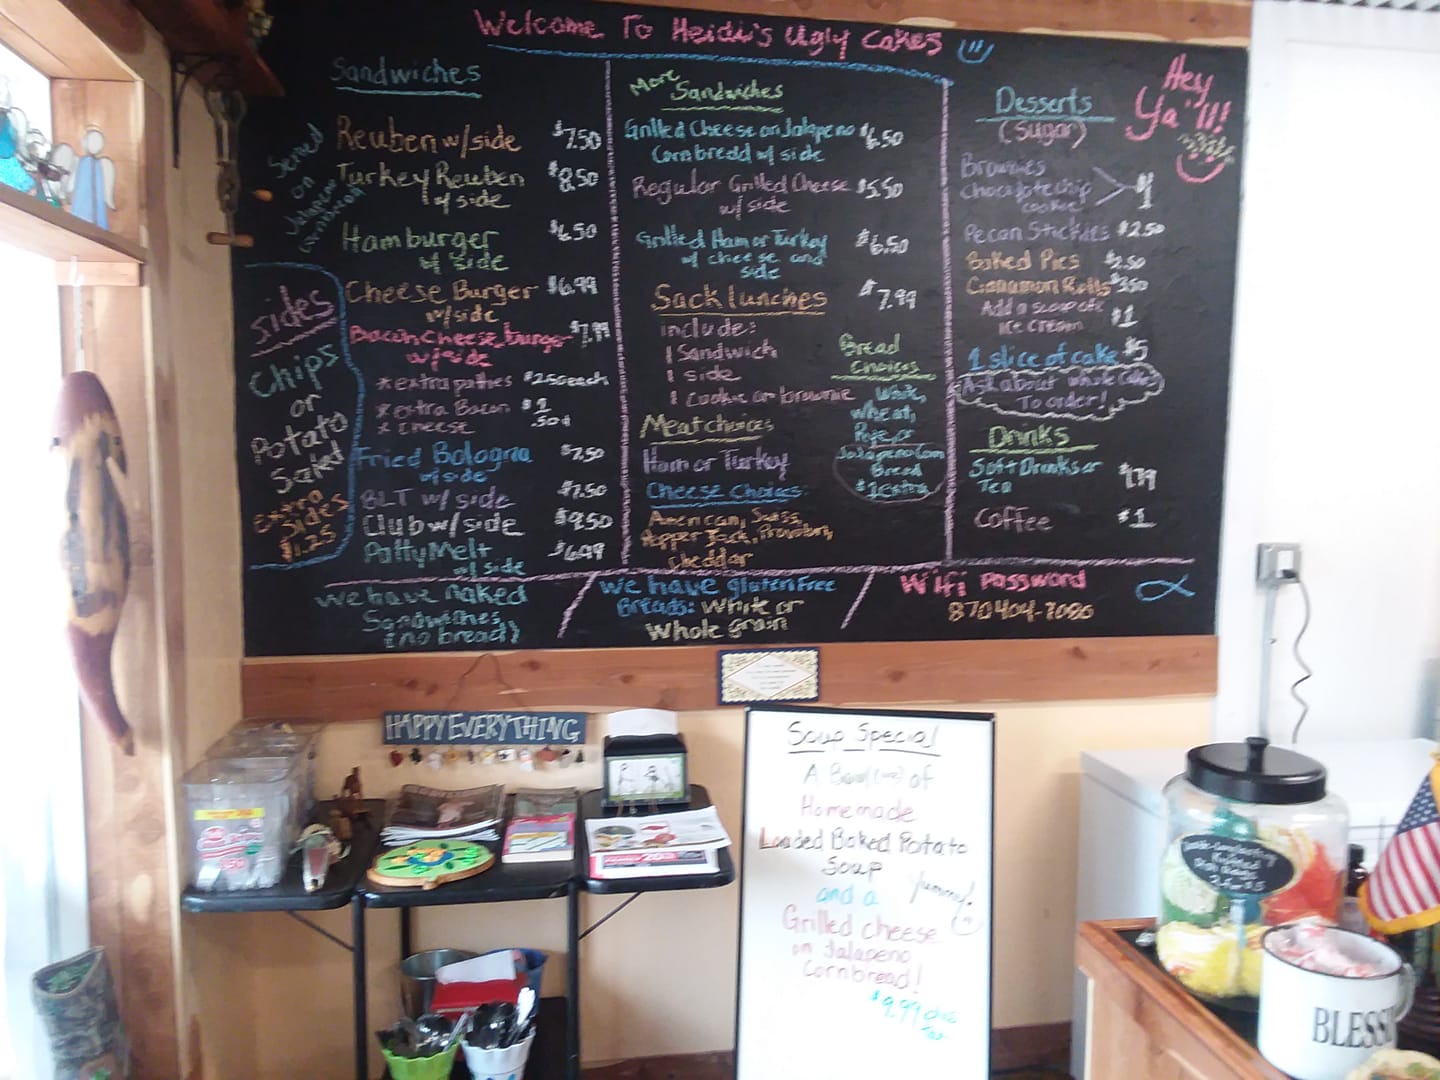 Welcome To Heidi's Ugly Cakes
Sandwiches
Served
on
Jalapeno
Cornbread
Reuben w/side $7.50
Turkey Reuben $8.50
w/side
Hamburger $6.50
w/ side
Cheese Burger $6.99
w/side
Bacon Cheese burger $7.99
w/side
*extra patties $2.50 each
*extra Bacon $1
*cheese .50¢
Fried Bologna $7.50
w/side
BLT w/side $7.50
Club w/side $9.50
Patty Melt $6.99
w/ side
Sides
Chips
or
Potato
Salad
Extra
Sides
$1.25
More
Sandwiches
Grilled Cheese on Jalapeno $6.50
Cornbread w/ side
Regular Grilled Cheese $5.50
w/side
Grilled Ham or Turkey $6.50
w/ cheese and
side
Sack lunches $7.99
include:
1 Sandwich
1 side
1 cookie or brownie
Meat choices
Ham or Turkey
Cheese Choices:
American, Swiss,
Pepper Jack, Provolon,
Cheddar
Bread
Choices
White,
Wheat,
Rye, or
Jalapeno Corn
Bread
$1 extra
Desserts
(Sugar)
Hey
Ya'll!
Brownies
Chocolate chip
cookie
$1
Pecan Stickies $2.50
Baked Pies $2.50
Cinnamon Rolls $3.50
Add a scoop of
Ice cream $1
1 slice of cake $5
Ask about whole Cakes
To order!
Drinks
Soft Drinks or
Tea
Coffee $1
We have naked
Sandwiches
(no bread)
We have gluten Free
Breads: White or
Whole grain
Wifi password
870404-7086
HAPPY EVERYTHING
Soup Special
A Bowl of
Homemade
Loaded Baked Potato
Soup
and a
Yummy!
Grilled cheese
on Jalapeno
Cornbread!
$9.99 plus
Tax
BLESS